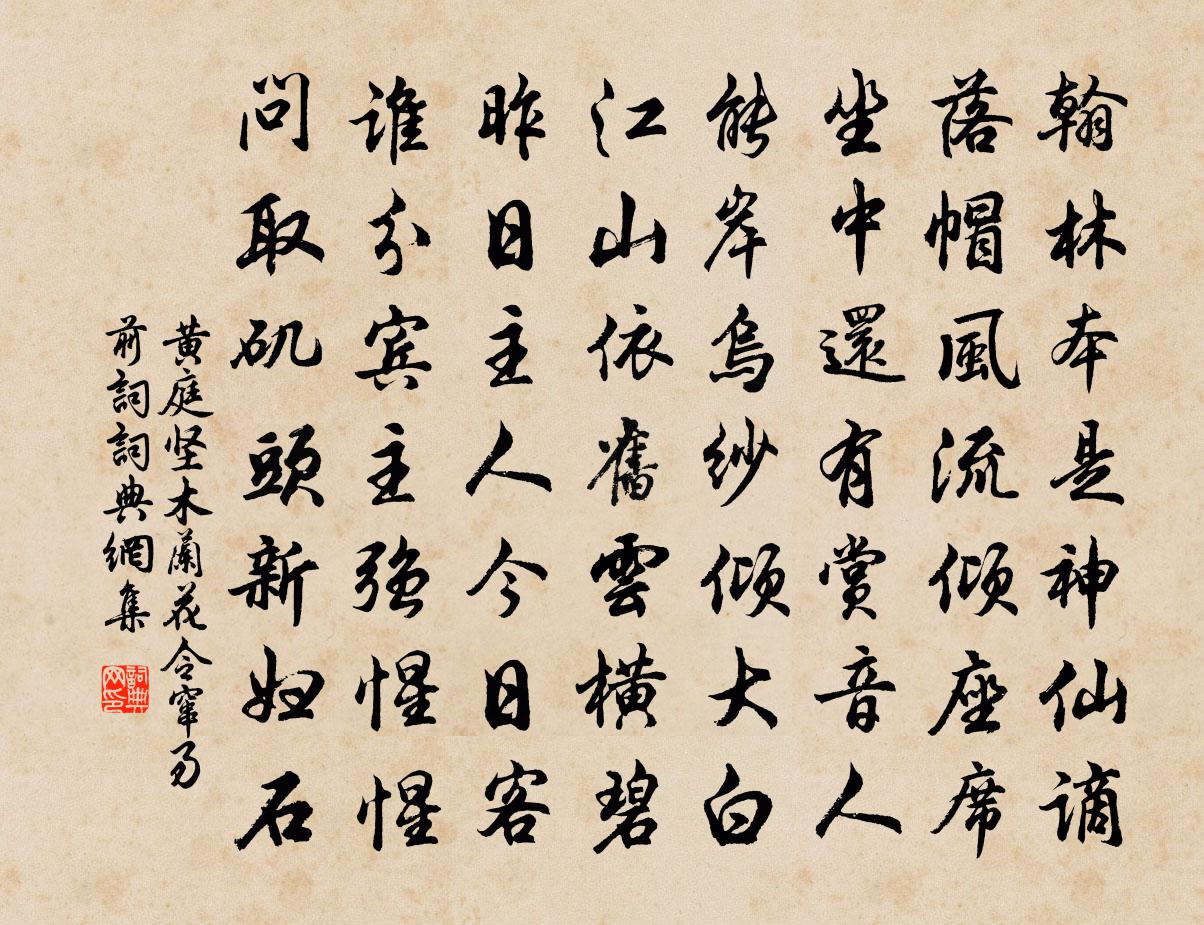 翰林本是神仙謫
落帽風流傾座席
坐中還有賞音人
能岸烏紗傾大白
江山依舊雲橫碧
昨日主人今日客
誰分宾主強惺惺
問取矶頭新妇石
黄庭坚木蘭花令窜易
前詞詞典網集
詞典网印